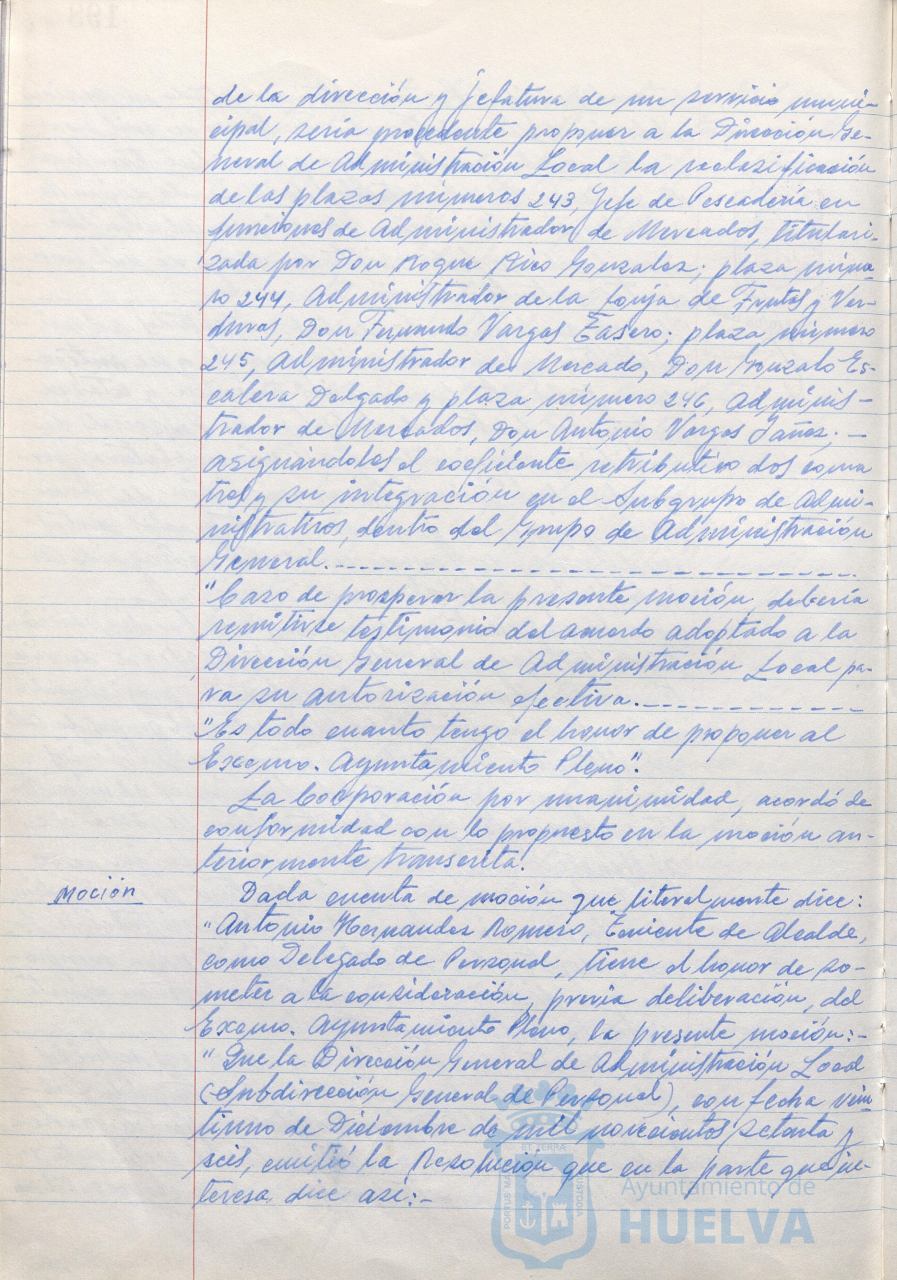 de la dirección y jefatura de un servicio muni-
cipal, sería procedente proponer a la Dirección Ge-
neral de Administración Local la reclasificación
de las plazas números 243, Jefe de Pescadería en
funciones de Administrador de Mercados, titulari-
zada por Don Roque Rico Gonzalez; plaza núme-
ro 244, Administrador de la Lonja de Frutas y Ver-
duras, Don Fernando Vargas Easero; plaza número
245, Administrador de Mercado, Don Gonzalo Es-
calera Delgado y plaza número 246, Adminis-
trador de Mercados, Don Antonio Vargas Yañez; —
asignándoles el coeficiente retributivo dos coma
tres y su integración en el Subgrupo de Admi-
nistrativos, dentro del Grupo de Administración
General.
"Caso de prosperar la presente moción, debería
remitirse testimonio del acuerdo adoptado a la
Dirección General de Administración Local pa-
ra su autorización efectiva.
"Es todo cuanto tengo el honor de proponer al
Excmo. Ayuntamiento Pleno".
La Corporación por unanimidad, acordó de
conformidad con lo propuesto en la moción an-
teriormente transcrita.
Moción
Dada cuenta de moción que literalmente dice:
"Antonio Hernandez Romero, Teniente de Alcalde,
como Delegado de Personal, tiene el honor de so-
meter a la consideración, previa deliberación, del
Excmo. Ayuntamiento Pleno, la presente moción:-
"Que la Dirección General de Administración Local
(Subdirección General de Personal), con fecha vein
tiuno de Diciembre de mil novecientos setenta y
seis, emitió la Resolución que en la parte que in-
teresa dice así:-
Ayuntamiento de
HUELVA